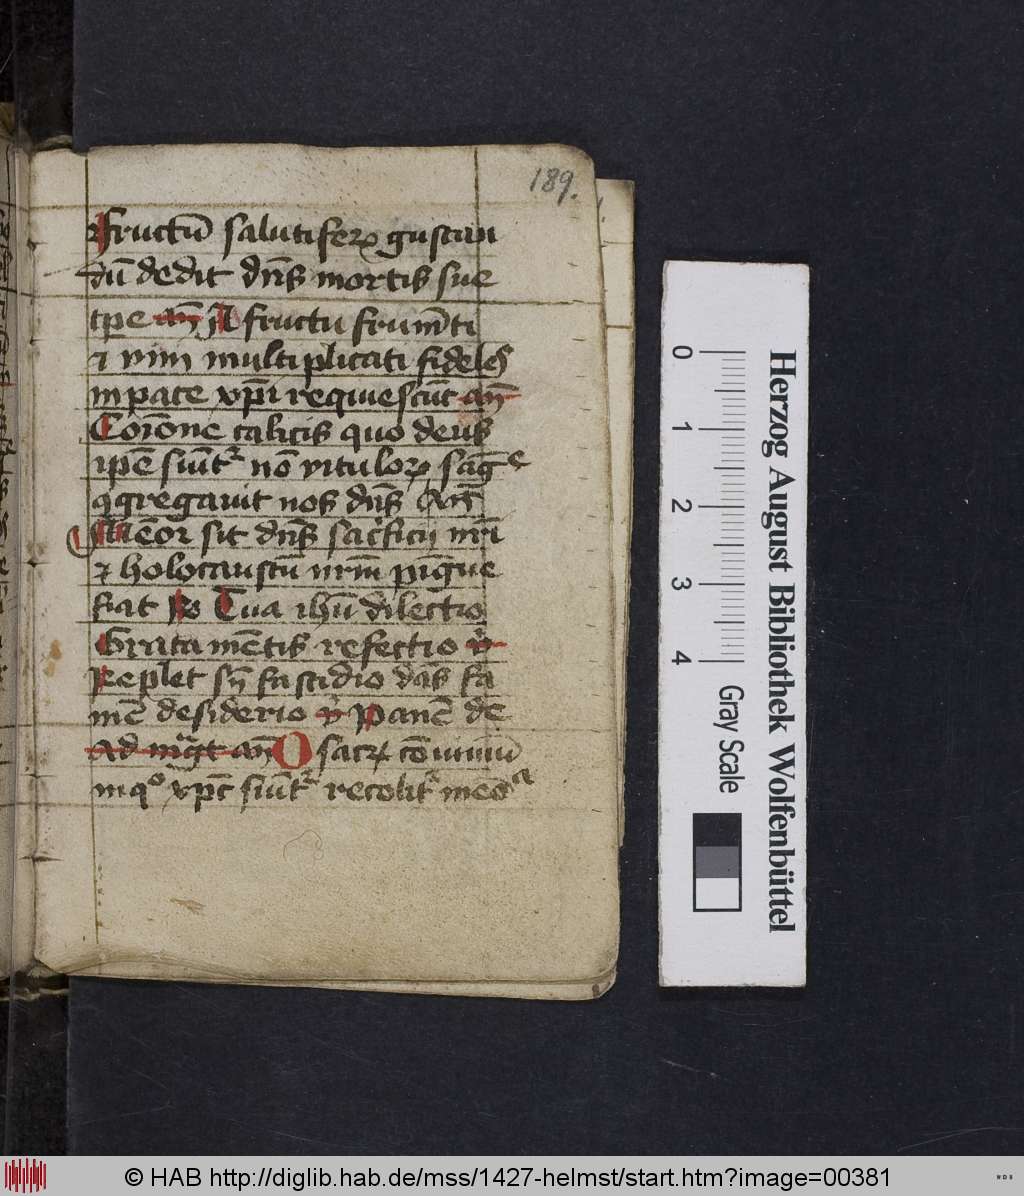 189.
Fructū salutiferꝝ gustan
dū dedit dn̄s mortis sue
tpe an̄ A fructu frumēti
⁊ vini multiplicati fideles
in pace xp̄i requiescūt an̄
Coīone calicis quo deus
ipē sūit᷑ nō vituloꝝ sāg᷑e
ꝯgregauit nos dn̄s An̄
Mēor sit dn̄s sacˢficij nr̄i
⁊ holocaustū nrm̄ pīgue
fiat Ps Tua ihū dilectio
Grata mētis refectio v̾
Replet sn̄ fastidio dās fa
mē desiderio v̾ Panē de
Ad mag̅t an̄ O sacꝝ cōuiuiū
inqᵒ xp̄c sūit᷑ recolit᷑ meōᵃ
Herzog August Bibliothek Wolfenbüttel
0 1 2 3 4
Gray Scale
© HAB http://diglib.hab.de/mss/1427-helmst/start.htm?image=00381